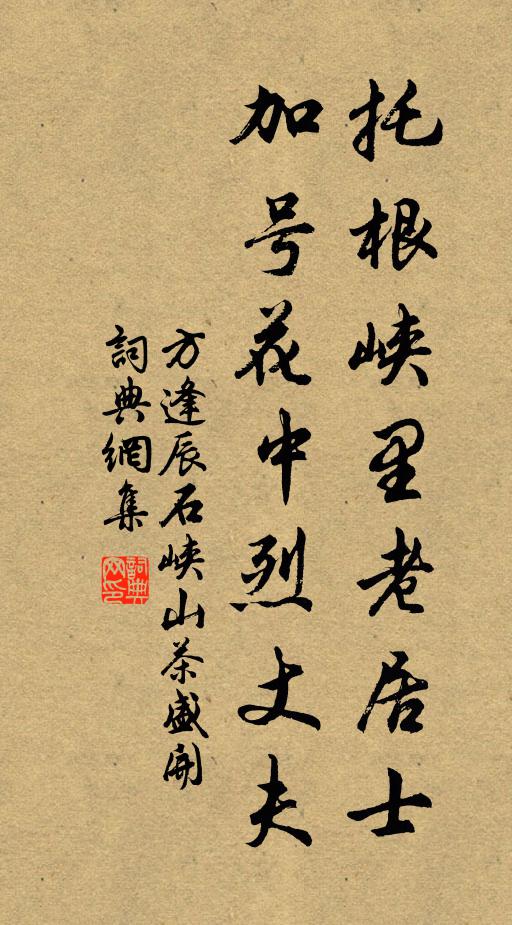 托根峡里老居士
加号花中烈丈夫
方逢辰石峡山茶盛開
詞典網集
詞典網印